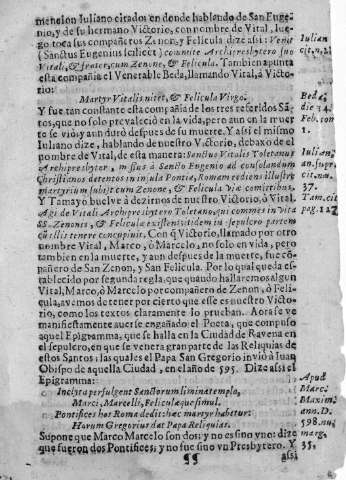 menolon Iuliano citados en donde hablando de San Euge-
nio, y de su hermano Victorio, con nombre de Vital, lue-
go toca sus compañeros Zenon, y Felicula dize assi: Venit
(Sanctus Eugenius scilicet) comite Archipresbytero suo
Vitali, & fratre, cum Zenone, & Felicula. Tambien apunta
esta compañia el Venerable Beda, llamando Vital, à Victo-
rio:
Martyr Vitalis nitet, & Felicula Virgo.
Y fue tan constante esta compañia de los tres referidos Sã-
tos, que no solo prevaleciò en la vida, pero aun en la muer
te se viò; y aun durò despues de su muerte. Y assi el mismo
Iuliano dize, hablando de nuestro Victorio, debaxo de el
nombre de Vital, de esta manera: Sanctus Vitalis Toletanus
Archipresbyter, missus à Sancto Eugenio ad consolandum
Christianos detentos in insula Pontia, Romam rediens illustre
martyrium subijt cum Zenone, & Felicula Viæ comitibus.
Y Tamayo buelve à dezirnos de nuestro Victorio, ò Vital.
Agi de Vitali Archipresbytero Toletano, qui commes in vita
SS. Zenonis, & Feliculæ existens itidem in sepulcro partem
quasillis tenere conspicuit. Con q̃ Victorio, llamado por otro
nombre Vital, Marco, ò Marcelo, no solo en vida, pero
tambien en la muerte, y aun despues de la muerte, fue cõ-
pañero de San Zenon, y San Felicula. Por lo qual queda es-
tablecido por segunda regla, que quando hallaremos algun
Vital, Marco, ò Marcelo por compañero de Zenon, ò Feli-
cula, avemos de tener por cierto que esse es nuestro Victo-
rio, como los textos claramente lo prueban. Aora se ve
manifiestamente aver se engañado el Poeta, que compuso
aquel Epigramma, que se halla en la Ciudad de Ravena en
el sepulcro, en que se venera gran parte de las Reliquias de
estos Santos; las quales el Papa San Gregorio inviò à Iuan
Obispo de aquella Ciudad, en el año de 595. Dize assi el
Epigramma:
Inclyta perfulgent Sanctorum limina templo,
Marci, Marcelli, Feliculæque simul.
Pontifices hos Roma dedit: hæc martyr habetur:
Horum Gregorius dat Papa Reliquias.
Supone que Marco Marcelo son dos; y no es sino vno: dize
que fueron dos Pontifices; y no fue sino vn Presbytero. Y
55
assi
Iulian
cit. n.
Beda,
die 14
Feb. tom
1.
Iulian.
an. supr.
cit. nu.
37.
Tam. cit
pag. 127
Apud
Marc.
Maxim.
ann. D.
598. nu.
marg.
35.